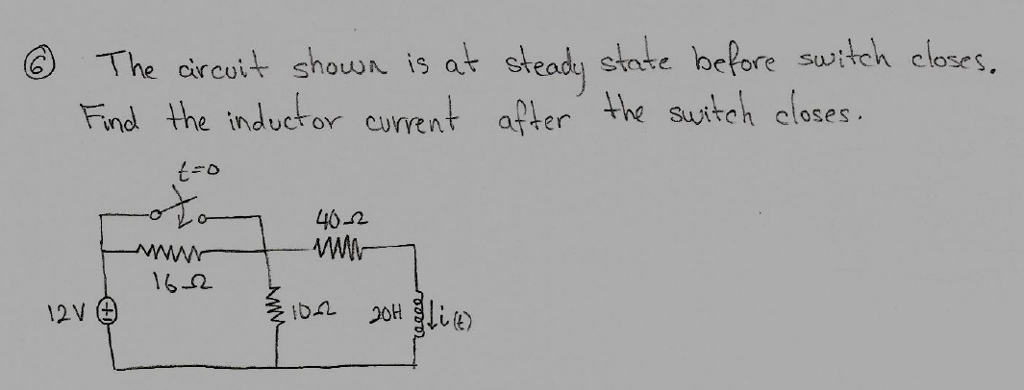 ⑥ The circuit shown is at steady state before switch closes.
Find the inductor current after the switch closes.
t=0
40Ω
16Ω
12V
10Ω
20H
i(t)